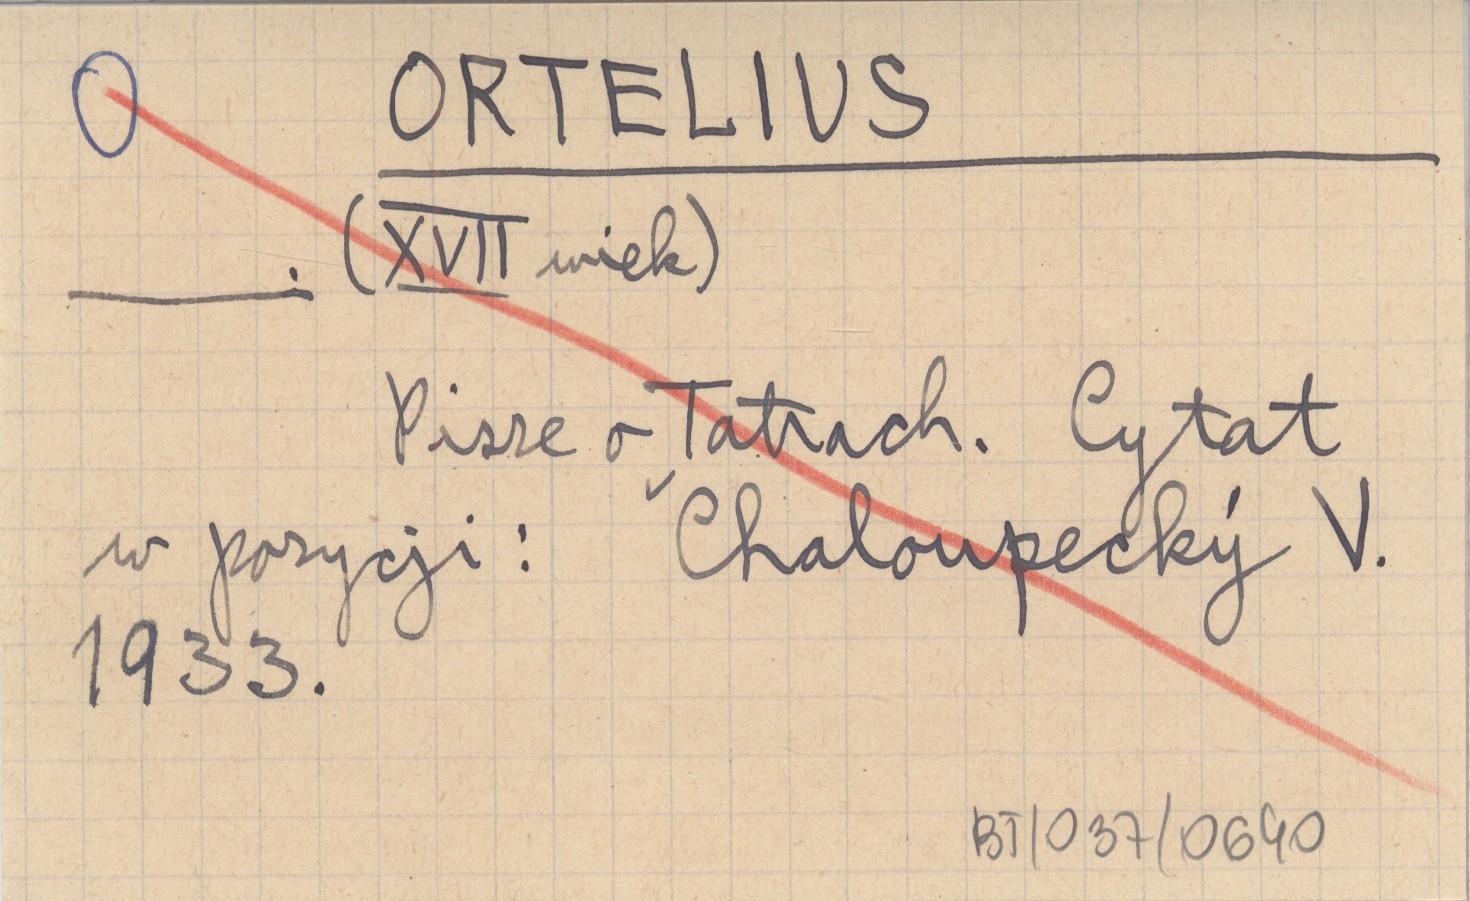 O ORTELIUS
. (XVII wiek)
Pisze o Tatrach. Cytat
w pozycji: Chaloupecký V.
1933.
BT/037/0640